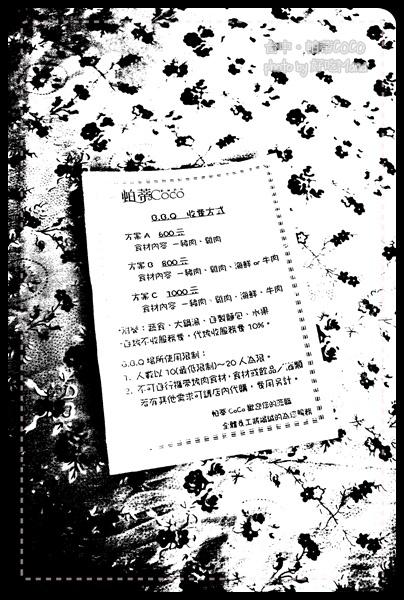 台中・帕蒂COCO
photo by
帕蒂Coco
B.B.Q 收費方式
方案A 600元
食材內容 － 豬肉、雞肉
方案B 800元
食材內容 － 豬肉、雞肉、海鮮 or 牛肉
方案C 1000元
食材內容 － 豬肉、雞肉、海鮮、牛肉
附餐：蔬食、大鍋湯、自製麵包、水果
自烤不收服務費，代烤收服務費 10%。
B.B.Q 場所使用限制：
1. 人數以 10(最低限制)～20 人為限。
2. 不可自行攜帶烤肉食材，食材或飲品／酒類
若有其他需求可請店內代購，費用另計。
帕蒂 CoCo 歡迎您的蒞臨
全體員工將竭誠的為您服務